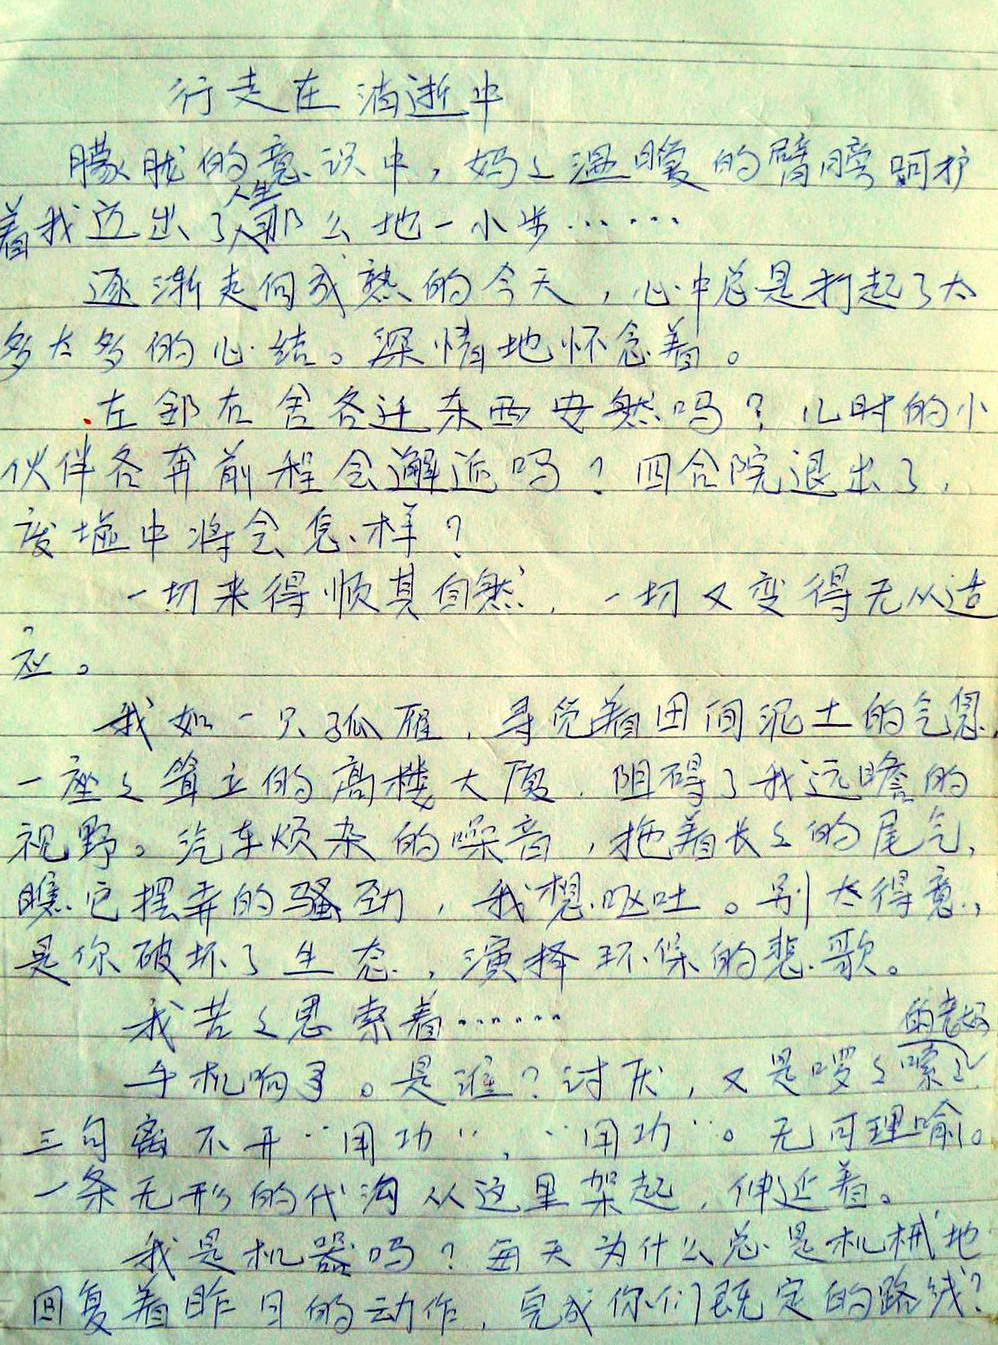 行走在消逝中
朦胧的意识中，妈々温暖的臂膀呵护
人生
着我迈出了那么地一小步……
逐渐走向成熟的今天，心中总是打起了太
多太多的心结。深情地怀念着。
左邻右舍各迁东西安然吗？儿时的小
伙伴各奔前程会邂逅吗？四合院退出了，
废墟中将会怎样？
一切来得顺其自然，一切又变得无从适
应。
我如一只孤雁，寻觅着田间泥土的气息，
一座々耸立的高楼大厦，阻碍了我远瞻的
视野。汽车烦杂的噪音，拖着长々的尾气，
瞧它摆弄的骚劲，我想呕吐。别太得意，
是你破坏了生态，演择环保的悲歌。
我苦々思索着……
的老妈
手机响了。是谁？讨厌，又是啰々嗦々
三句离不开“用功”，“用功”。无可理喻。
一条无形的代沟从这里架起，伸延着。
我是机器吗？每天为什么总是机械地
回复着昨日的动作，完成你们既定的路线？